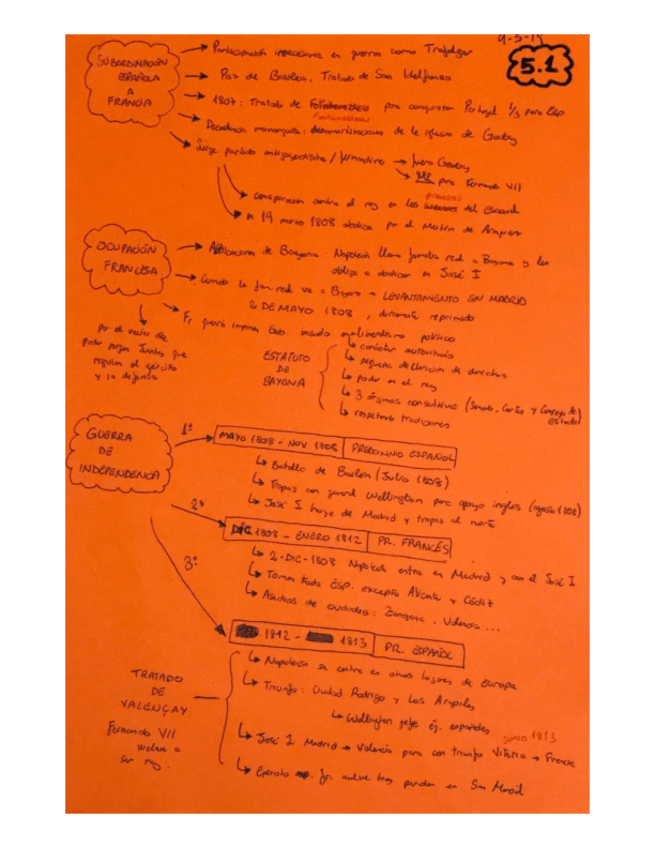 9-5-19
5.1
SUBORDINACIÓN ESPAÑOLA A FRANCIA
→ Participación innecesaria en guerras como Trafalgar
→ Paz de Basilea, Tratado de San Ildefonso
→ 1807: Tratado de Fontainebleau pra conquistar Portugal 1/3 para Esp
→ Decadencia monarquía: desamortizaciones de la iglesia de Godoy
→ Surge partido antigodoyista / fernandino → fuera Godoy
→ pra Fernando VII
→ conspiración contra el rey en los procesos del Escorial
→ 19 marzo 1808 abdica por el Motín de Aranjuez
OCUPACIÓN FRANCESA
→ Abdicaciones de Bayona: Napoleón llama familia real a Bayona y les
obliga a abdicar en José I
→ Cuando la fam. real va a Bayona → LEVANTAMIENTO EN MADRID
2 DE MAYO 1808, duramente reprimido
→ Fr. quería imponer Gob basado en liberalismo político
Por el vacío de
poder surgen Juntas que
regulan el ejército
y la defensa
ESTATUTO DE BAYONA
↳ carácter autoritario
↳ pequeña declaración de derechos
↳ poder en el rey
↳ 3 órganos consultivos (Senado, Cortes y Consejo de Estado)
↳ respetaron tradiciones
GUERRA DE INDEPENDENCIA
1ª
MAYO 1808 - NOV 1808 | PREDOMINIO ESPAÑOL
↳ Batalla de Bailén (Julio 1808)
↳ Tropas con general Wellington para apoyo inglés (agosto 1808)
↳ José I huye de Madrid y tropas al norte
2ª
DIC 1808 - ENERO 1812 | PR. FRANCÉS
↳ 2-DIC-1808 Napoleón entra en Madrid y con él José I
↳ Toman toda ESP. excepto Alicante y Cádiz
↳ Asedios de ciudades: Zaragoza, Valencia ...
3ª
1812 - 1813 | PR. ESPAÑOL
↳ Napoleón se centra en otros lugares de Europa
↳ Triunfo: Ciudad Rodrigo y Los Arapiles
↳ Wellington jefe ej. españoles
↳ José I Madrid → Valencia para con triunfo Vitoria → Francia
JUNIO 1813
↳ Ejército fr. vuelve tras perder en San Marcial
TRATADO DE VALENÇAY
Fernando VII
vuelve a
ser rey.